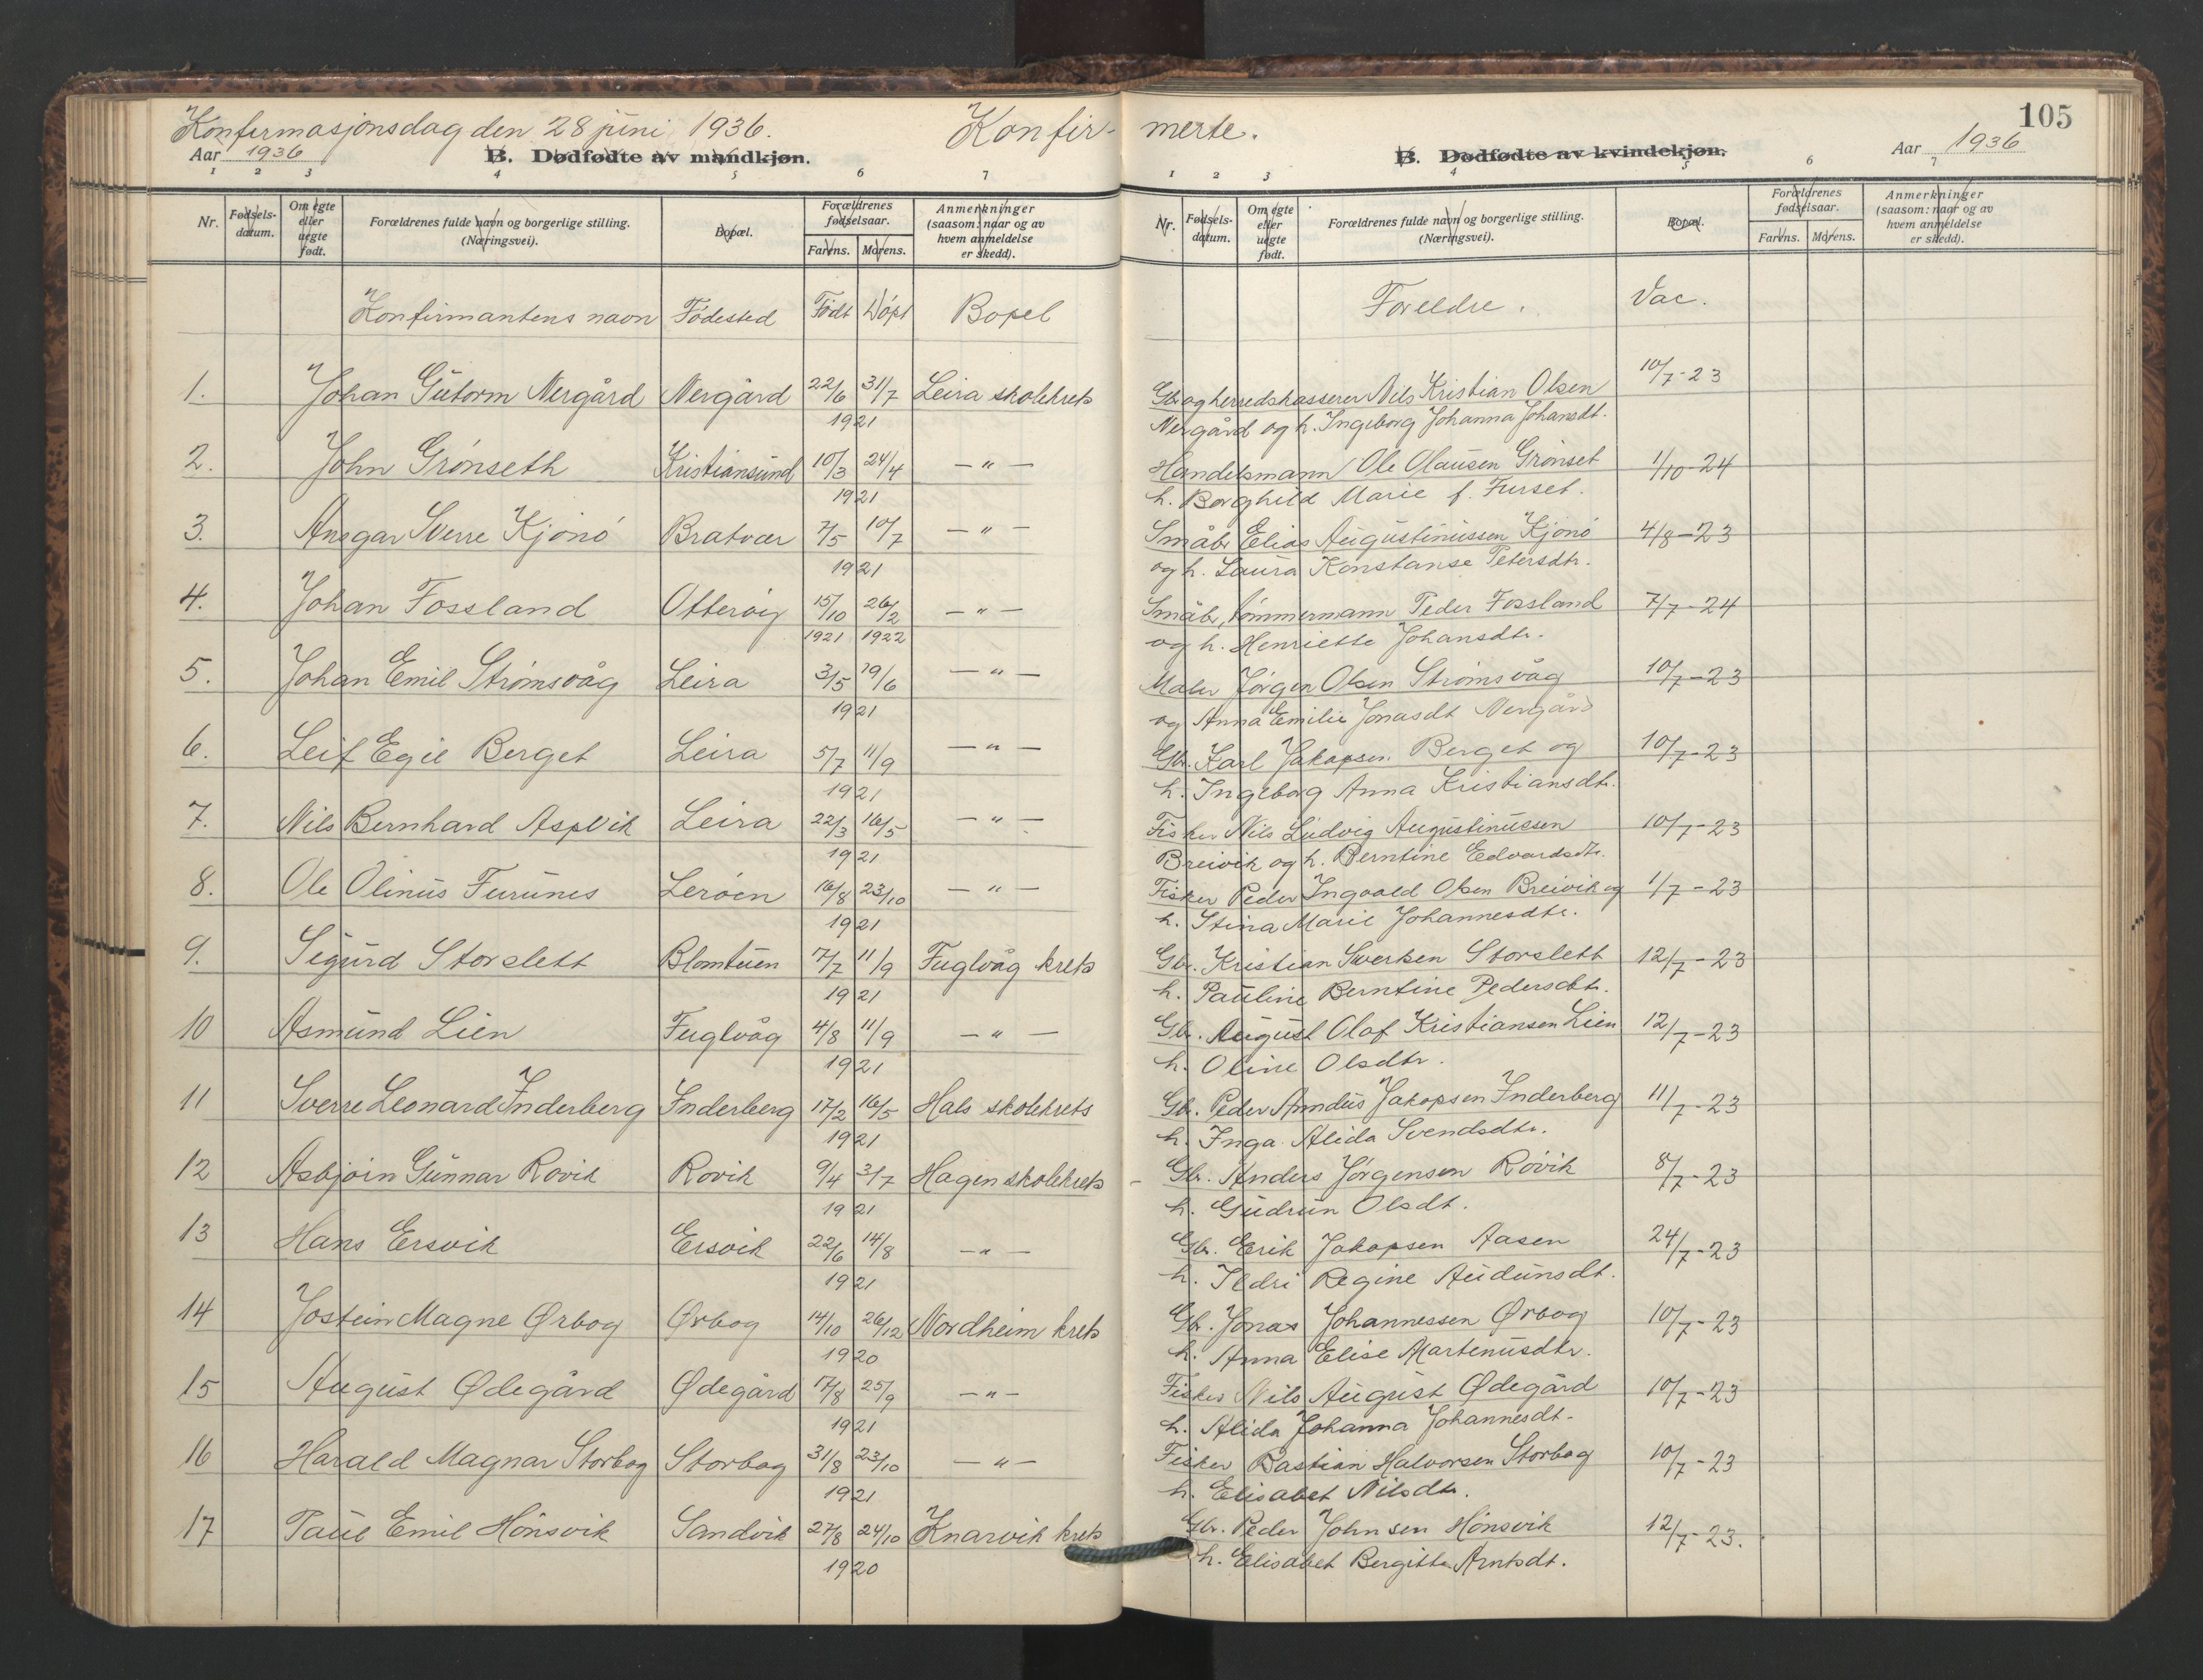 Konfirmasjonsdag den 28 juni 1936. Konfir-
Aar 1936 B. Dødfødte av mandkjøn.
1 2 3 4 5 6 7
Nr. Fødsels-datum. Om egte eller uegte født. Forældrenes fulde navn og borgerlige stilling. (Næringsvei). Bopæl. Forældrenes fødselsaar. Farens. Morens. Anmerkninger (saasom: naar og av hvem anmeldelse er skedd).
Konfirmantens navn Födested Födt Döpt Bopel
1. Johan Gutorm Nergård Nergård 22/6 31/7 Leira skolekrets
1921
2. John Grönseth Kristiansund 10/3 24/4 — " —
1921
3. Ansgar Sverre Kjönö Bratvær 7/5 10/7 — " —
1921
4. Johan Fossland Otterøig 15/10 26/2 — " —
1921 1922
5. Johan Emil Strömsvåg Leira 3/5 19/6 — " —
1921
6. Leif Egil Berget Leira 5/7 11/9 — " —
1921
7. Nils Bernhard Aspvik Leira 22/3 16/5 — " —
1921
8. Ole Olinus Furunes Leröen 16/8 23/10 — " —
1921
9. Sigurd Storslett Blomtuen 17/7 11/9 Fuglvåg krets
1921
10 Asmund Lien Fuglvåg 4/8 11/9 — " —
1921
11 Sverre Leonard Inderberg Inderberg 17/2 16/5 Hals skolekrets
1921
12 Asbjörn Gunnar Rövik Rövik 9/4 3/7 Hagen skolekrets
1921
13 Hans Ersvik Ersvik 22/6 14/8 — " —
1921
14 Jostein Magne Ørbog Ørbog 14/10 26/12 Nordheim krets
1920
15 August Ødegård Ødegård 17/8 25/9 — " —
1921
16 Harald Magnar Storbog Storbog 31/8 23/10 — " —
1921
17 Paul Emil Hönsvik Sandvik 27/8 24/10 Knarvik krets
1920
105
merte.
B. Dødfødte av kvindekjøn. Aar 1936
1 2 3 4 5 6 7
Nr. Fødsels-datum. Om egte eller uegte født. Forældrenes fulde navn og borgerlige stilling. (Næringsvei). Bopæl. Forældrenes fødselsaar. Farens. Morens. Anmerkninger (saasom: naar og av hvem anmeldelse er skedd).
Foreldre. Vac.
Gbr og herredskasserer Nils Kristian Olsen 10/7-23
Nergård og h. Ingeborg Johanna Johansdt.
Handelsmann Ole Olausen Grönset 1/10-24
h. Borghild Marie f. Furset.
Småbr Elias Augustinussen Kjönö 4/8-23
og h. Laura Konstanse Petersdtr.
Småbr, tömmermann Peder Fossland 7/7-24
og h. Henriette Johansdtr.
Maler Jörgen Olsen Strömsvåg 10/7-23
og Anna Emilie Jonasdt Nergård
Gbr. Karl Jakopsen Berget og 10/7-23
h. Ingeborg Anna Kristiansdtr.
Fisker Nils Ludvig Augustinussen 10/7-23
Breivik og h. Berntine Edvardsdtr.
Fisker Peder Ingvald Olsen Breivik og 1/7-23
h. Stina Marie Johannesdtr.
Gbr. Kristian Sverksen Storslett 12/7-23
h. Pauline Berntine Pedersdtr.
Gbr. August Olaf Kristiansen Lien 12/7-23
h. Oline Olsdtr.
Gbr. Peder Amdus Jakopsen Inderberg 11/7-23
h. Inga Alida Svendsdtr.
Gbr. Anders Jörgensen Rövik 8/7-23
h. Gudrun Olsdt.
Gbr. Erik Jakopsen Aasen 24/7-23
h. Ildri Regine Audunsdt.
Gbr. Jonas Johannessen Ørbog 10/7-23
h. Anna Elise Martenusdtr.
Fisker Nils August Ødegård 10/7-23
h. Alida Johanna Johannesdt-
Fisker Bastian Halvorsen Storbog 10/7-23
h. Elisabet Nilsdtr.
Gbr. Peder Johnsen Hönsvik 12/7-23.
h. Elisabet Bergitte Arntsdt.